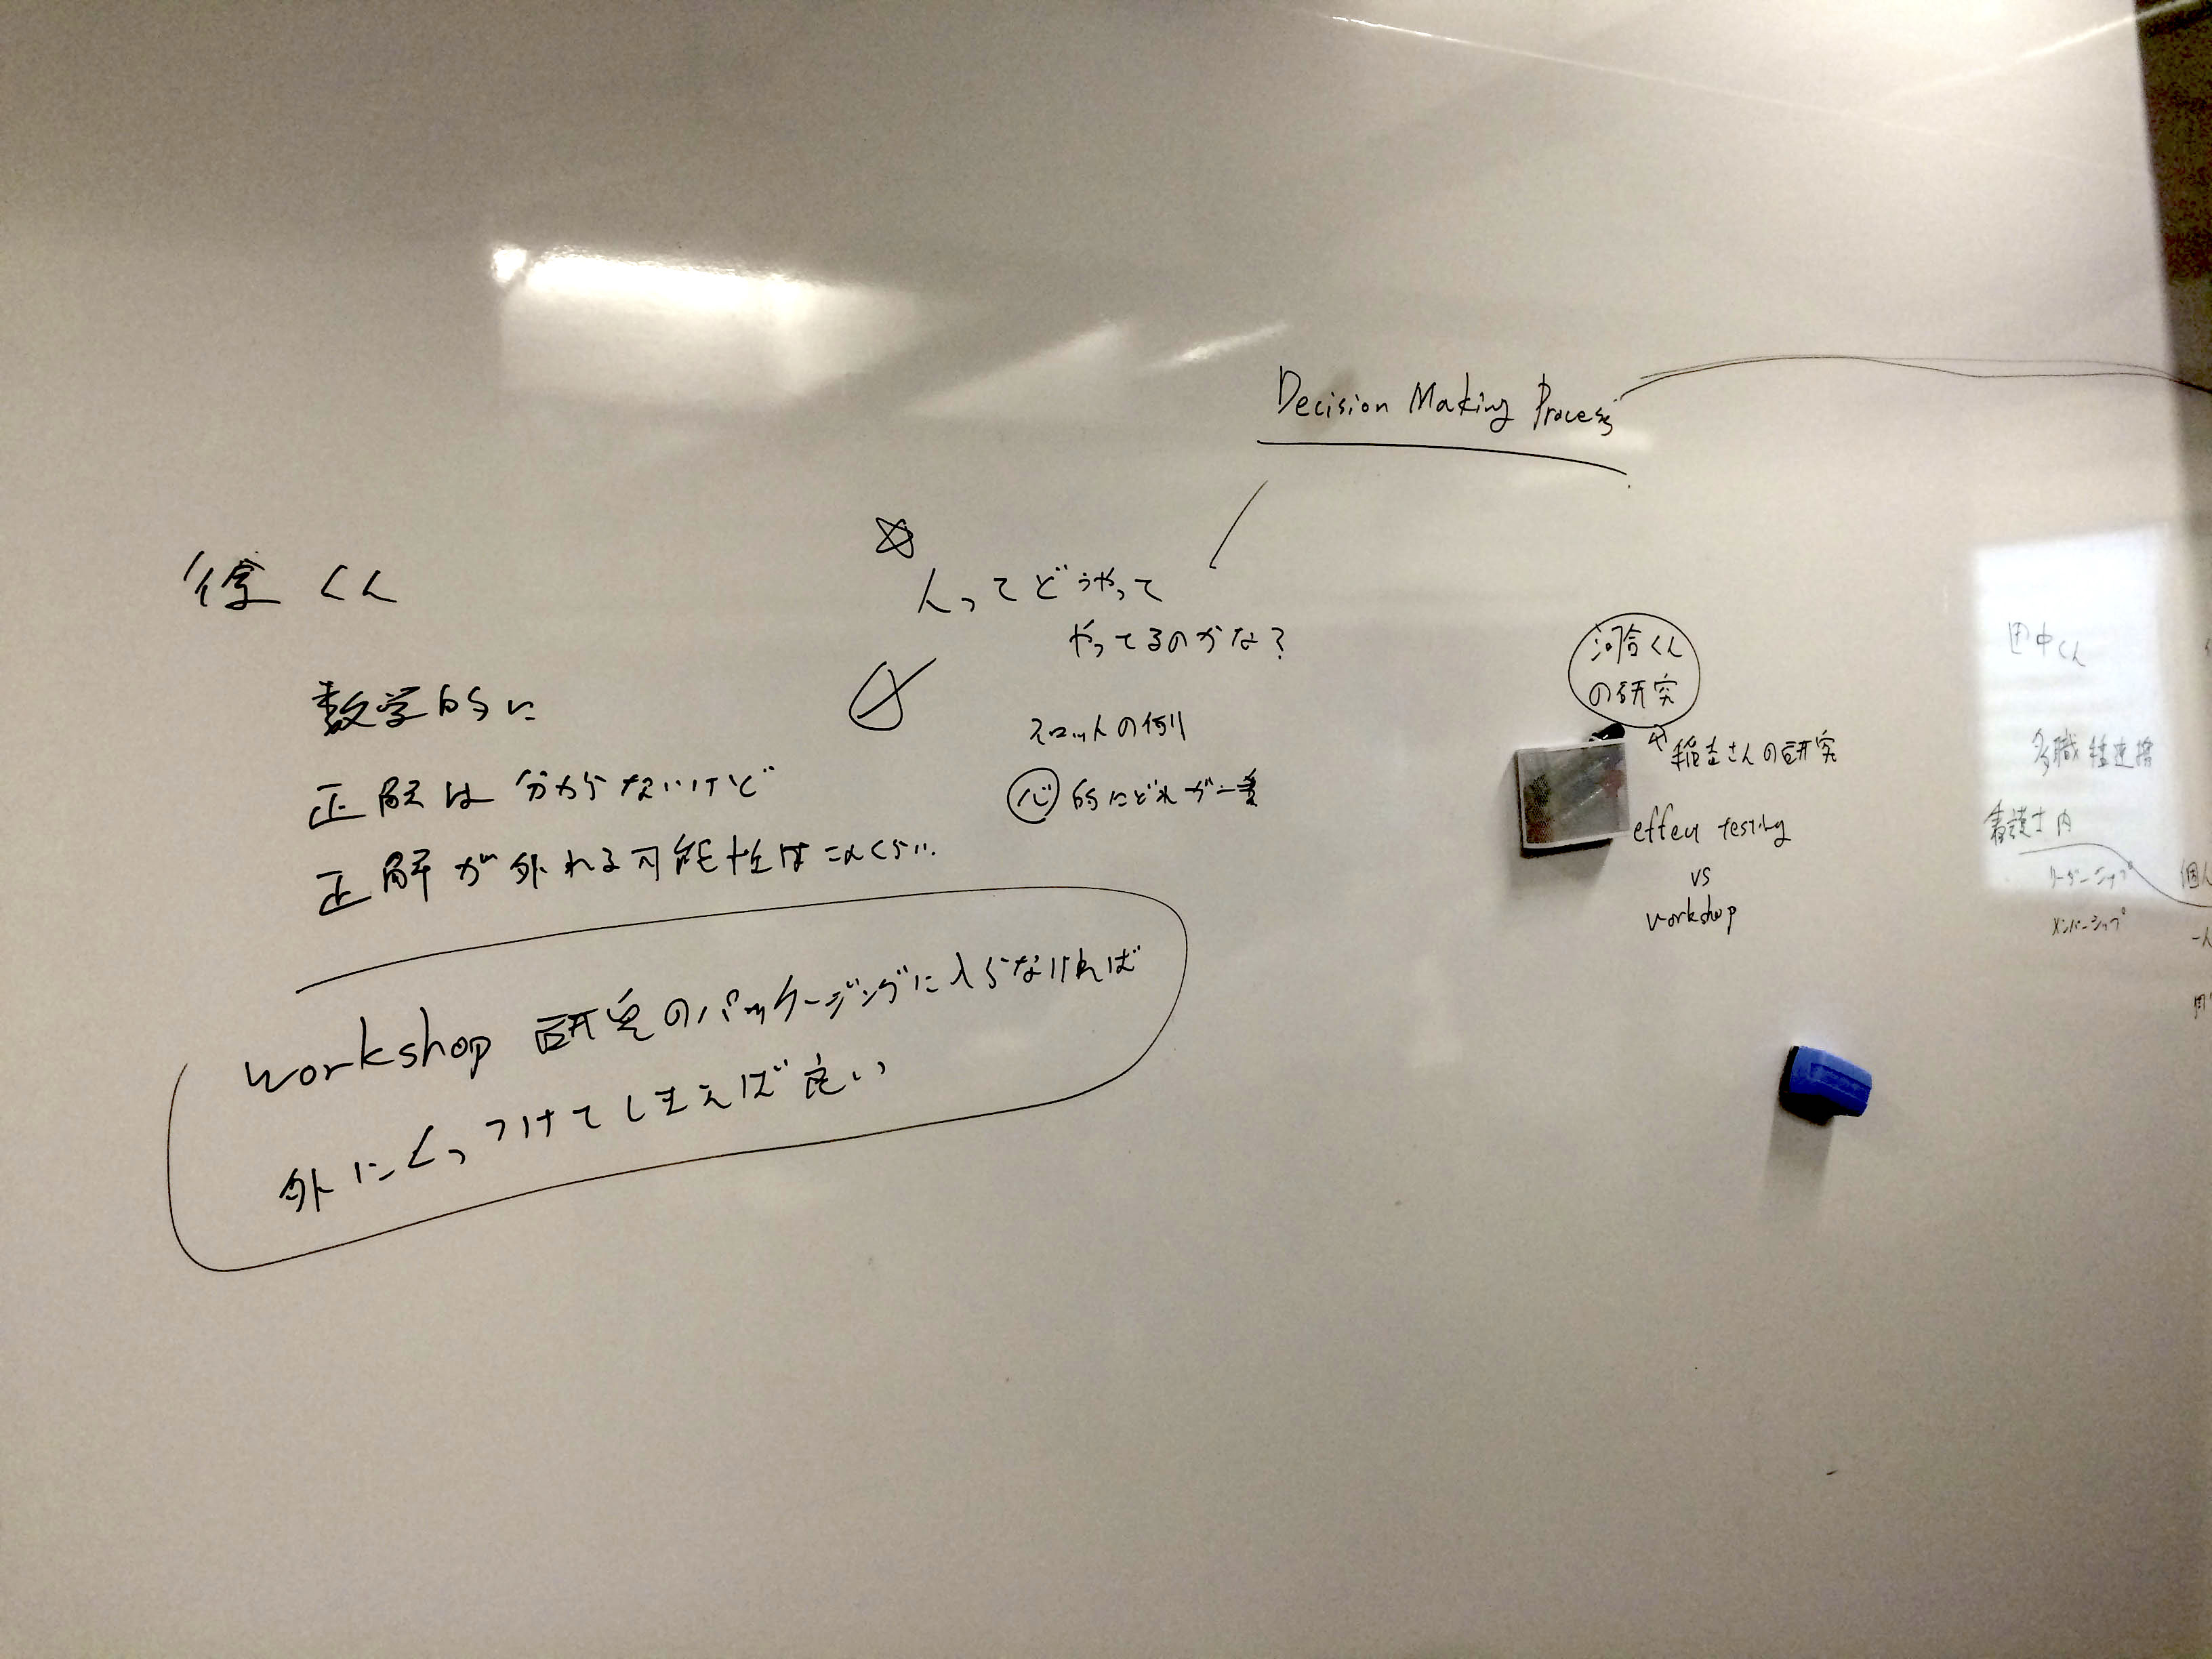 徐くん
数学的に
正解は分からないけど
正解が外れる可能性はこれくらい.
workshop 研究のパッケージングに入らなければ
外にくっつけてしまえば良い
Decision Making Process
人ってどうやって
やってるのかな?
スロットの例
心的にどれが一番
河合くん
の研究
さんの研究
effect testing
vs
workshop
田中くん
多職種連携
看護士内
リーダーシップ
メンバーシップ
個人